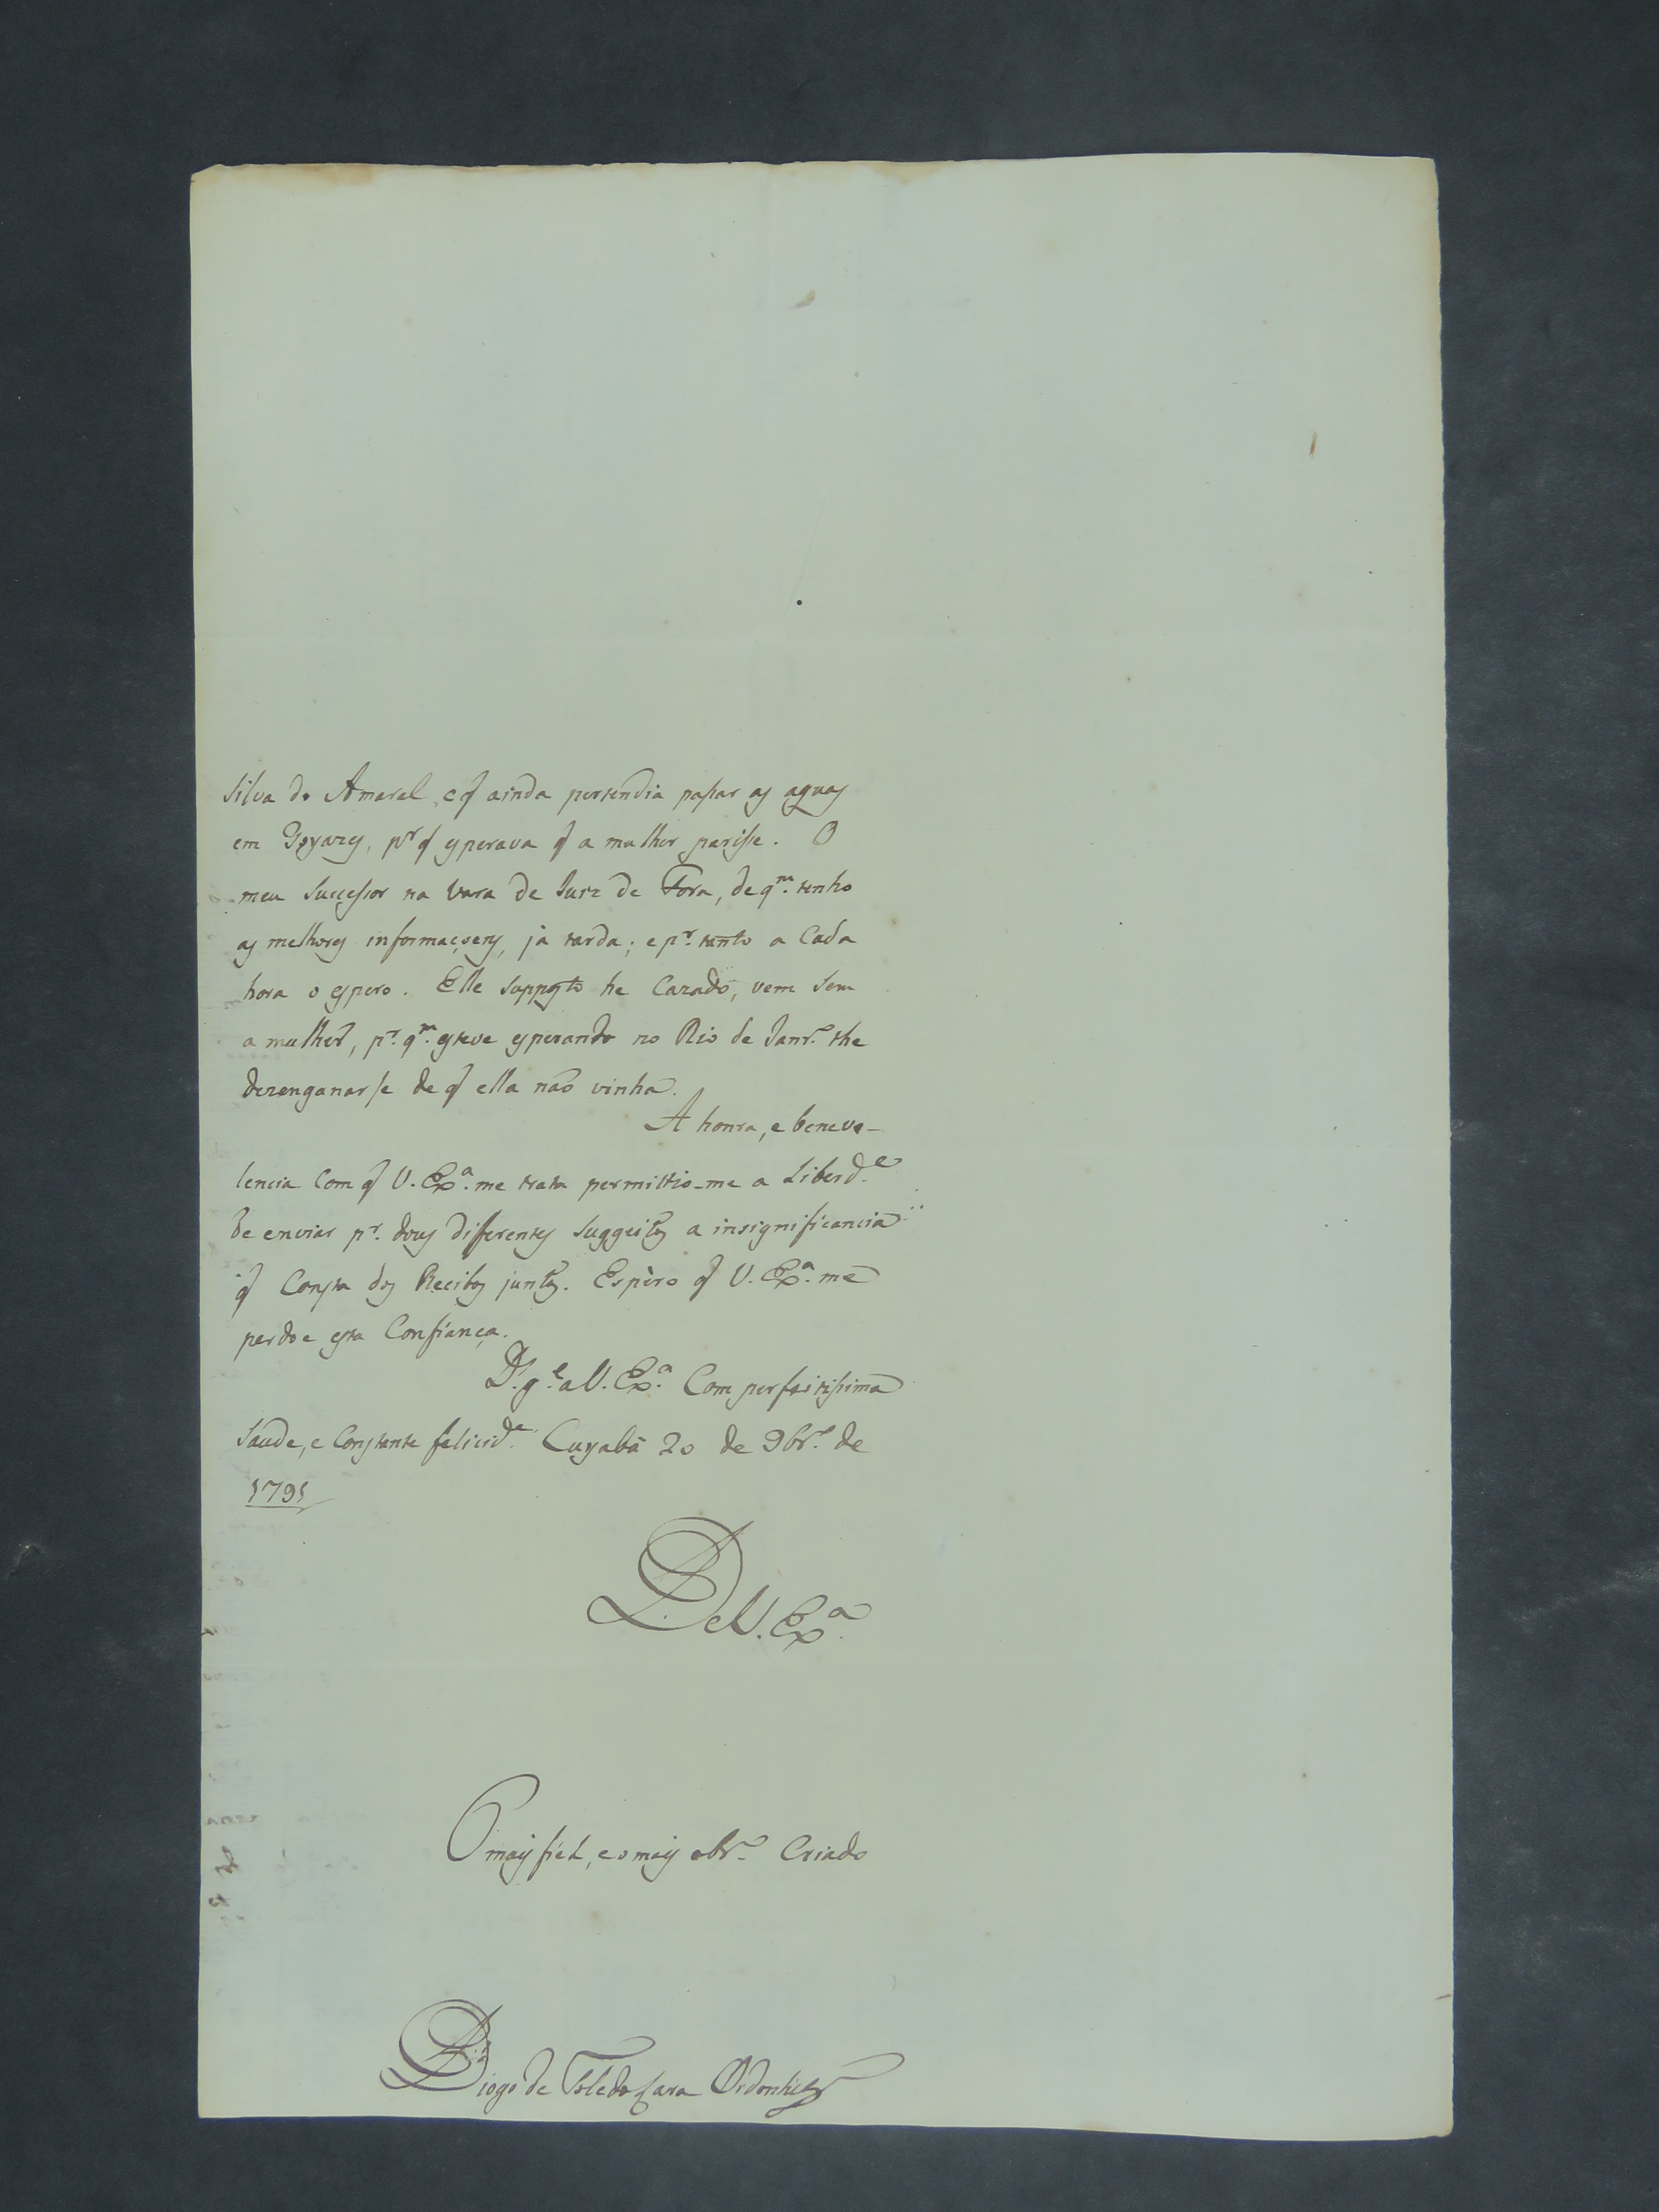 Silva do Amaral, e q̃ ainda pertendia passar as aguas
em Goyazes, pr. q̃ esperava q̃ a mulher parisse. O
meu Successor na Vara de Juiz de Fora, de qm. tenho
as melhores informaçoens, já tarda; e pr. tanto a Cada
hora o espero. Elle supposto he Cazado, vem sem
a mulher, pr. qm. esteve esperando no Rio de Janro. the
dezenganarse de q̃ ella não vinha.
A honra, e beneve-
lencia Com q̃ V. Exa. me trata permittio-me a Liberde.
de enviar pr. dous differentes Suggeitos a insignificancia
q̃ Consta dos Recibos juntos. Espèro q̃ V. Exa. me
perdoe esta Confiança.
Ds. ge. a V. Exa. Com perfeitissima
Saude, e Constante felicide. Cuyabá 20 de 9bro. de
1791
De V. Exa.
O mais fiel, e o mais obro. Criado
Diogo de Toledo Lara Ordonhez